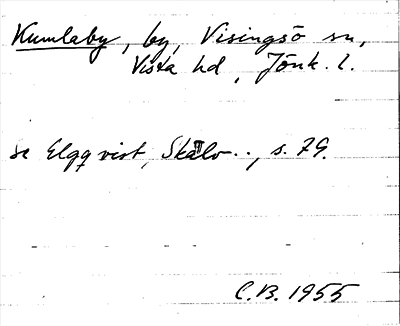 Kumlaby, by, Visingsö sn,
Vista hd, Jönk. l.
se Elgqvist, Skälv.., s. 79.
C.B. 1955